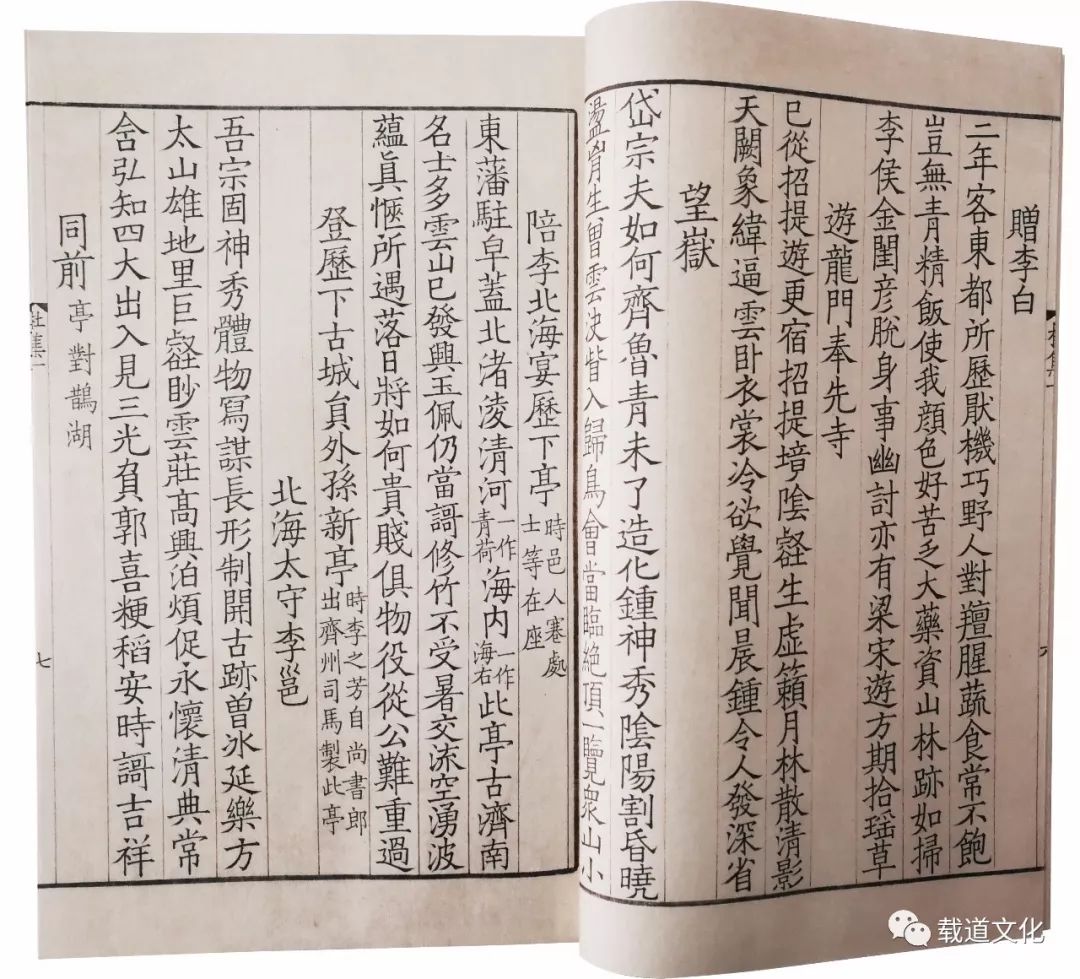 贈李白
二年客東都所歷厭機巧野人對羶腥蔬食常不飽
豈無青精飯使我顏色好苦乏大藥資山林跡如掃
李侯金閨彦脫身事幽討亦有梁宋遊方期拾瑶草
遊龍門奉先寺
已從招提遊更宿招提境陰壑生虛籟月林散清影
天闕象緯逼雲卧衣裳冷欲覺聞晨鍾令人發深省
望嶽
岱宗夫如何齊魯青未了造化鍾神秀陰陽割昏曉
盪胷生曽雲决眥入歸鳥會當臨絶頂一覽衆山小
陪李北海宴歷下亭 時邑人蹇處
士等在座
東藩駐皁蓋北渚淩清河 一作
青荷 海內 一作
海右 此亭古濟南
名士多雲山已發興玉佩仍當謌修竹不受暑交流空湧波
蘊眞愜所遇落日將如何貴賤俱物役從公難重過
登歷下古城貟外孫新亭 時李之芳自尚書郎
出齊州司馬製此亭
北海太守李邕
吾宗固神秀體物寫謀長形制開古跡曽冰延樂方
太山雄地里巨壑眇雲莊高興泊煩促永懷清典常
含弘知四大出入見三光負郭喜粳稻安時謌吉祥
同前 亭對鵲湖
杜集一
七
载道文化